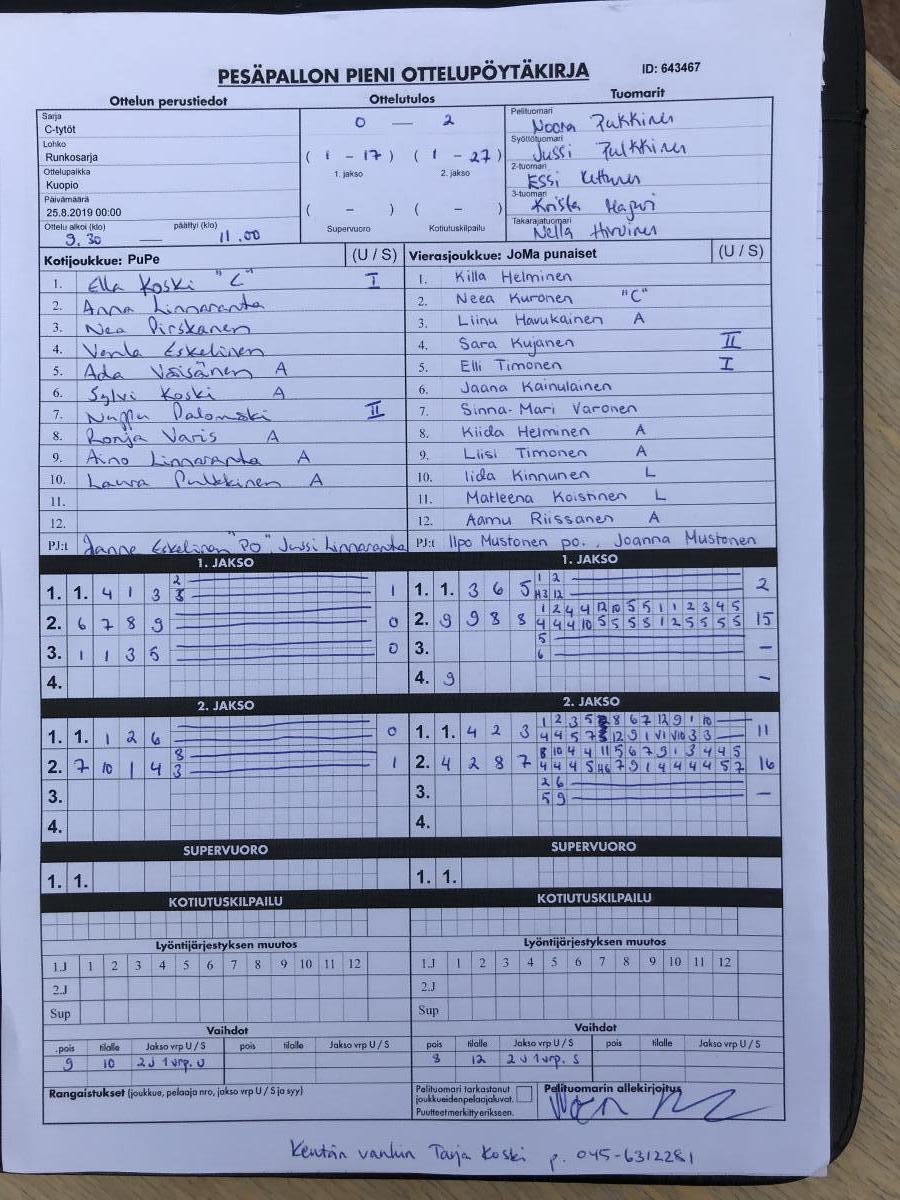 PESÄPALLON PIENI OTTELUPÖYTÄKIRJA ID: 643467
Ottelun perustiedot Ottelutulos Tuomarit
Sarja
C-tytöt
Lohko
Runkosarja
Ottelupaikka
Kuopio
Päivämäärä
25.8.2019 00:00
Ottelu alkoi (klo) päättyi (klo)
9.30 — 11.00
0 — 2
( 1 - 17 ) ( 1 - 27 )
1. jakso 2. jakso
( - ) ( - )
Supervuoro Kotiutuskilpailu
Pelituomari
Noora Pulkkinen
Syöttötuomari
Jussi Pulkkinen
2-tuomari
Essi
3-tuomari
Krista
Takarajatuomari
Nella Hirvinen
Kotijoukkue: PuPe (U / S)
1. Ella Koski "C" I
2. Anna Linnaranta
3. Nea Pirskanen
4. Venla Eskelinen
5. Ada Väisänen A
6. Sylvi Koski A
7. II
8. Ronja Varis A
9. Aino Linnaranta A
10. Laura Pulkkinen A
11.
12.
PJ:t Janne Eskelinen "PO". Jussi Linnaranta
Vierasjoukkue: JoMa punaiset (U / S)
1. Killa Helminen
2. Neea Kuronen "C"
3. Liinu Havukainen A
4. Sara Kujanen II
5. Elli Timonen I
6. Jaana Kainulainen
7. Sinna-Mari Varonen
8. Kiida Helminen A
9. Liisi Timonen A
10. Iida Kinnunen L
11. Matleena Koistinen L
12. Aamu Riissanen A
PJ:t Ilpo Mustonen po., Joanna Mustonen
1. JAKSO
2
1. 1. 4 1 3 3 1
2. 6 7 8 9 0
3. 1 1 3 5 0
4.
1. JAKSO
1 2
1. 1. 3 6 5 H3 12 2
1 2 4 4 12 10 5 5 1 1 2 3 4 5
2. 9 9 8 8 4 4 4 10 5 5 5 8 1 2 5 5 5 5 15
5
3. 6 –
4. 9 –
2. JAKSO
1. 1. 1 2 6 0
8
2. 7 10 1 4 3 1
3.
4.
2. JAKSO
1 2 3 5 8 6 7 12 9 1 10
1. 1. 4 2 3 4 4 5 7 12 9 1 V1 V10 3 3 11
8 10 4 4 11 5 6 7 9 1 3 4 4 5
2. 4 2 8 7 4 4 4 5 H6 7 9 1 4 4 4 4 5 7 16
2 6
3. 5 9 –
4.
SUPERVUORO
1. 1.
SUPERVUORO
1. 1.
KOTIUTUSKILPAILU
KOTIUTUSKILPAILU
Lyöntijärjestyksen muutos
1.J 1 2 3 4 5 6 7 8 9 10 11 12
2.J
Sup
Lyöntijärjestyksen muutos
1.J 1 2 3 4 5 6 7 8 9 10 11 12
2.J
Sup
Vaihdot
pois tilalle Jakso vrp U / S pois tilalle Jakso vrp U / S
9 10 2J 1vrp. U
Vaihdot
pois tilalle Jakso vrp U / S pois tilalle Jakso vrp U / S
8 12 2J 1vrp. S
Rangaistukset (joukkue, pelaaja nro, jakso vrp U / S ja syy)
Pelituomari tarkastanut
joukkueidenpelaajaluvat.
Puutteetmerkittyerikseen.
Pelituomarin allekirjoitus
Kentän vanhin Tarja Koski p. 045-6312281